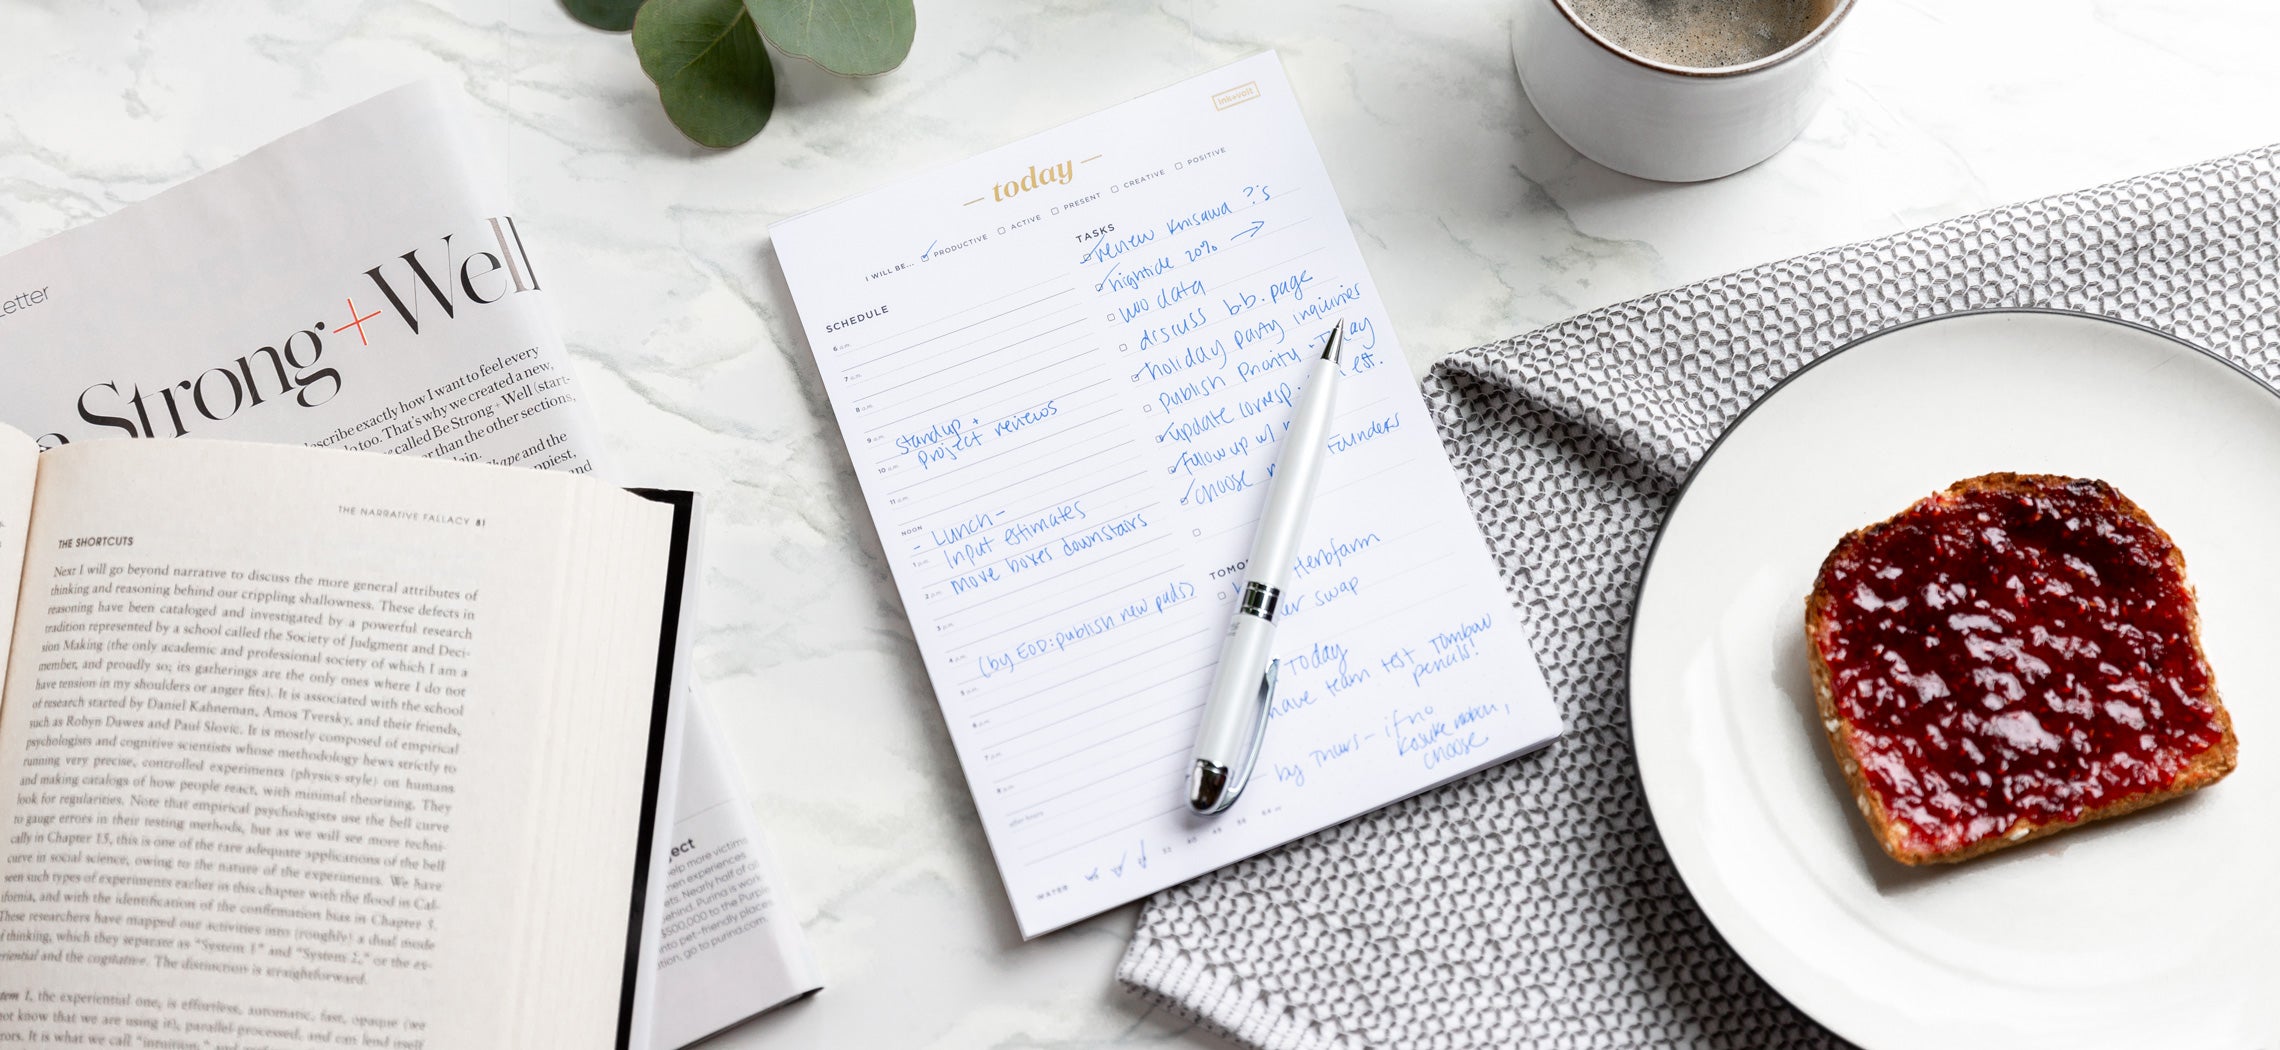 Letter
Strong+Well
describe exactly how I want to feel every
too. That's why we created a new,
called Be Strong + Well (start-
r than the other sections,
Shape and the
happiest,
and
THE NARRATIVE FALLACY 81
THE SHORTCUTS
Next I will go beyond narrative to discuss the more general attributes of
thinking and reasoning behind our crippling shallowness. These defects in
reasoning have been cataloged and investigated by a powerful research
tradition represented by a school called the Society of Judgment and Deci-
sion Making (the only academic and professional society of which I am a
member, and proudly so; its gatherings are the only ones where I do not
have tension in my shoulders or anger fits). It is associated with the school
of research started by Daniel Kahneman, Amos Tversky, and their friends,
such as Robyn Dawes and Paul Slovic. It is mostly composed of empirical
psychologists and cognitive scientists whose methodology hews strictly to
running very precise, controlled experiments (physics-style) on humans
and making catalogs of how people react, with minimal theorizing. They
look for regularities. Note that empirical psychologists use the bell curve
to gauge errors in their testing methods, but as we will see more techni-
cally in Chapter 15, this is one of the rare adequate applications of the bell
curve in social science, owing to the nature of the experiments. We have
seen such types of experiments earlier in this chapter with the flood in Cal-
ifornia, and with the identification of the confirmation bias in Chapter 5.
These researchers have mapped our activities into (roughly) a dual mode
of thinking, which they separate as "System 1" and "System 2," or the ex-
periential and the cogitative. The distinction is straightforward.
System 1, the experiential one, is effortless, automatic, fast, opaque (we
not know that we are using it), parallel-processed, and can lend itself
rors. It is what we call "intuition," and
ect
help more victims
men experiences
ets. Nearly half of
behind. Purina is work
$500,000 to the Purple
into pet-friendly places
tion, go to purina.com.
ink+volt
today
I WILL BE... PRODUCTIVE ACTIVE PRESENT CREATIVE POSITIVE
SCHEDULE
6 a.m.
7 a.m.
8 a.m.
9 a.m. standup +
project reviews
10 a.m.
11 a.m.
NOON - Lunch -
1 p.m. Input estimates
2 p.m. move boxes downstairs
3 p.m.
4 p.m. (by EOD: publish new pads)
5 p.m.
6 p.m.
7 p.m.
8 p.m.
after hours
TASKS
review Knisawa ?'s
hightide 20% →
WO data
discuss b.b. page
holiday party inquiries
publish Priority - Today
update corresp. est.
follow up w/
choose founders
TOMO
Herbfarm
swap
Today
have team test Tombow
pencils!
by Thurs - if no
Kosuke motion,
choose
WATER 32 40 48 56 64 oz